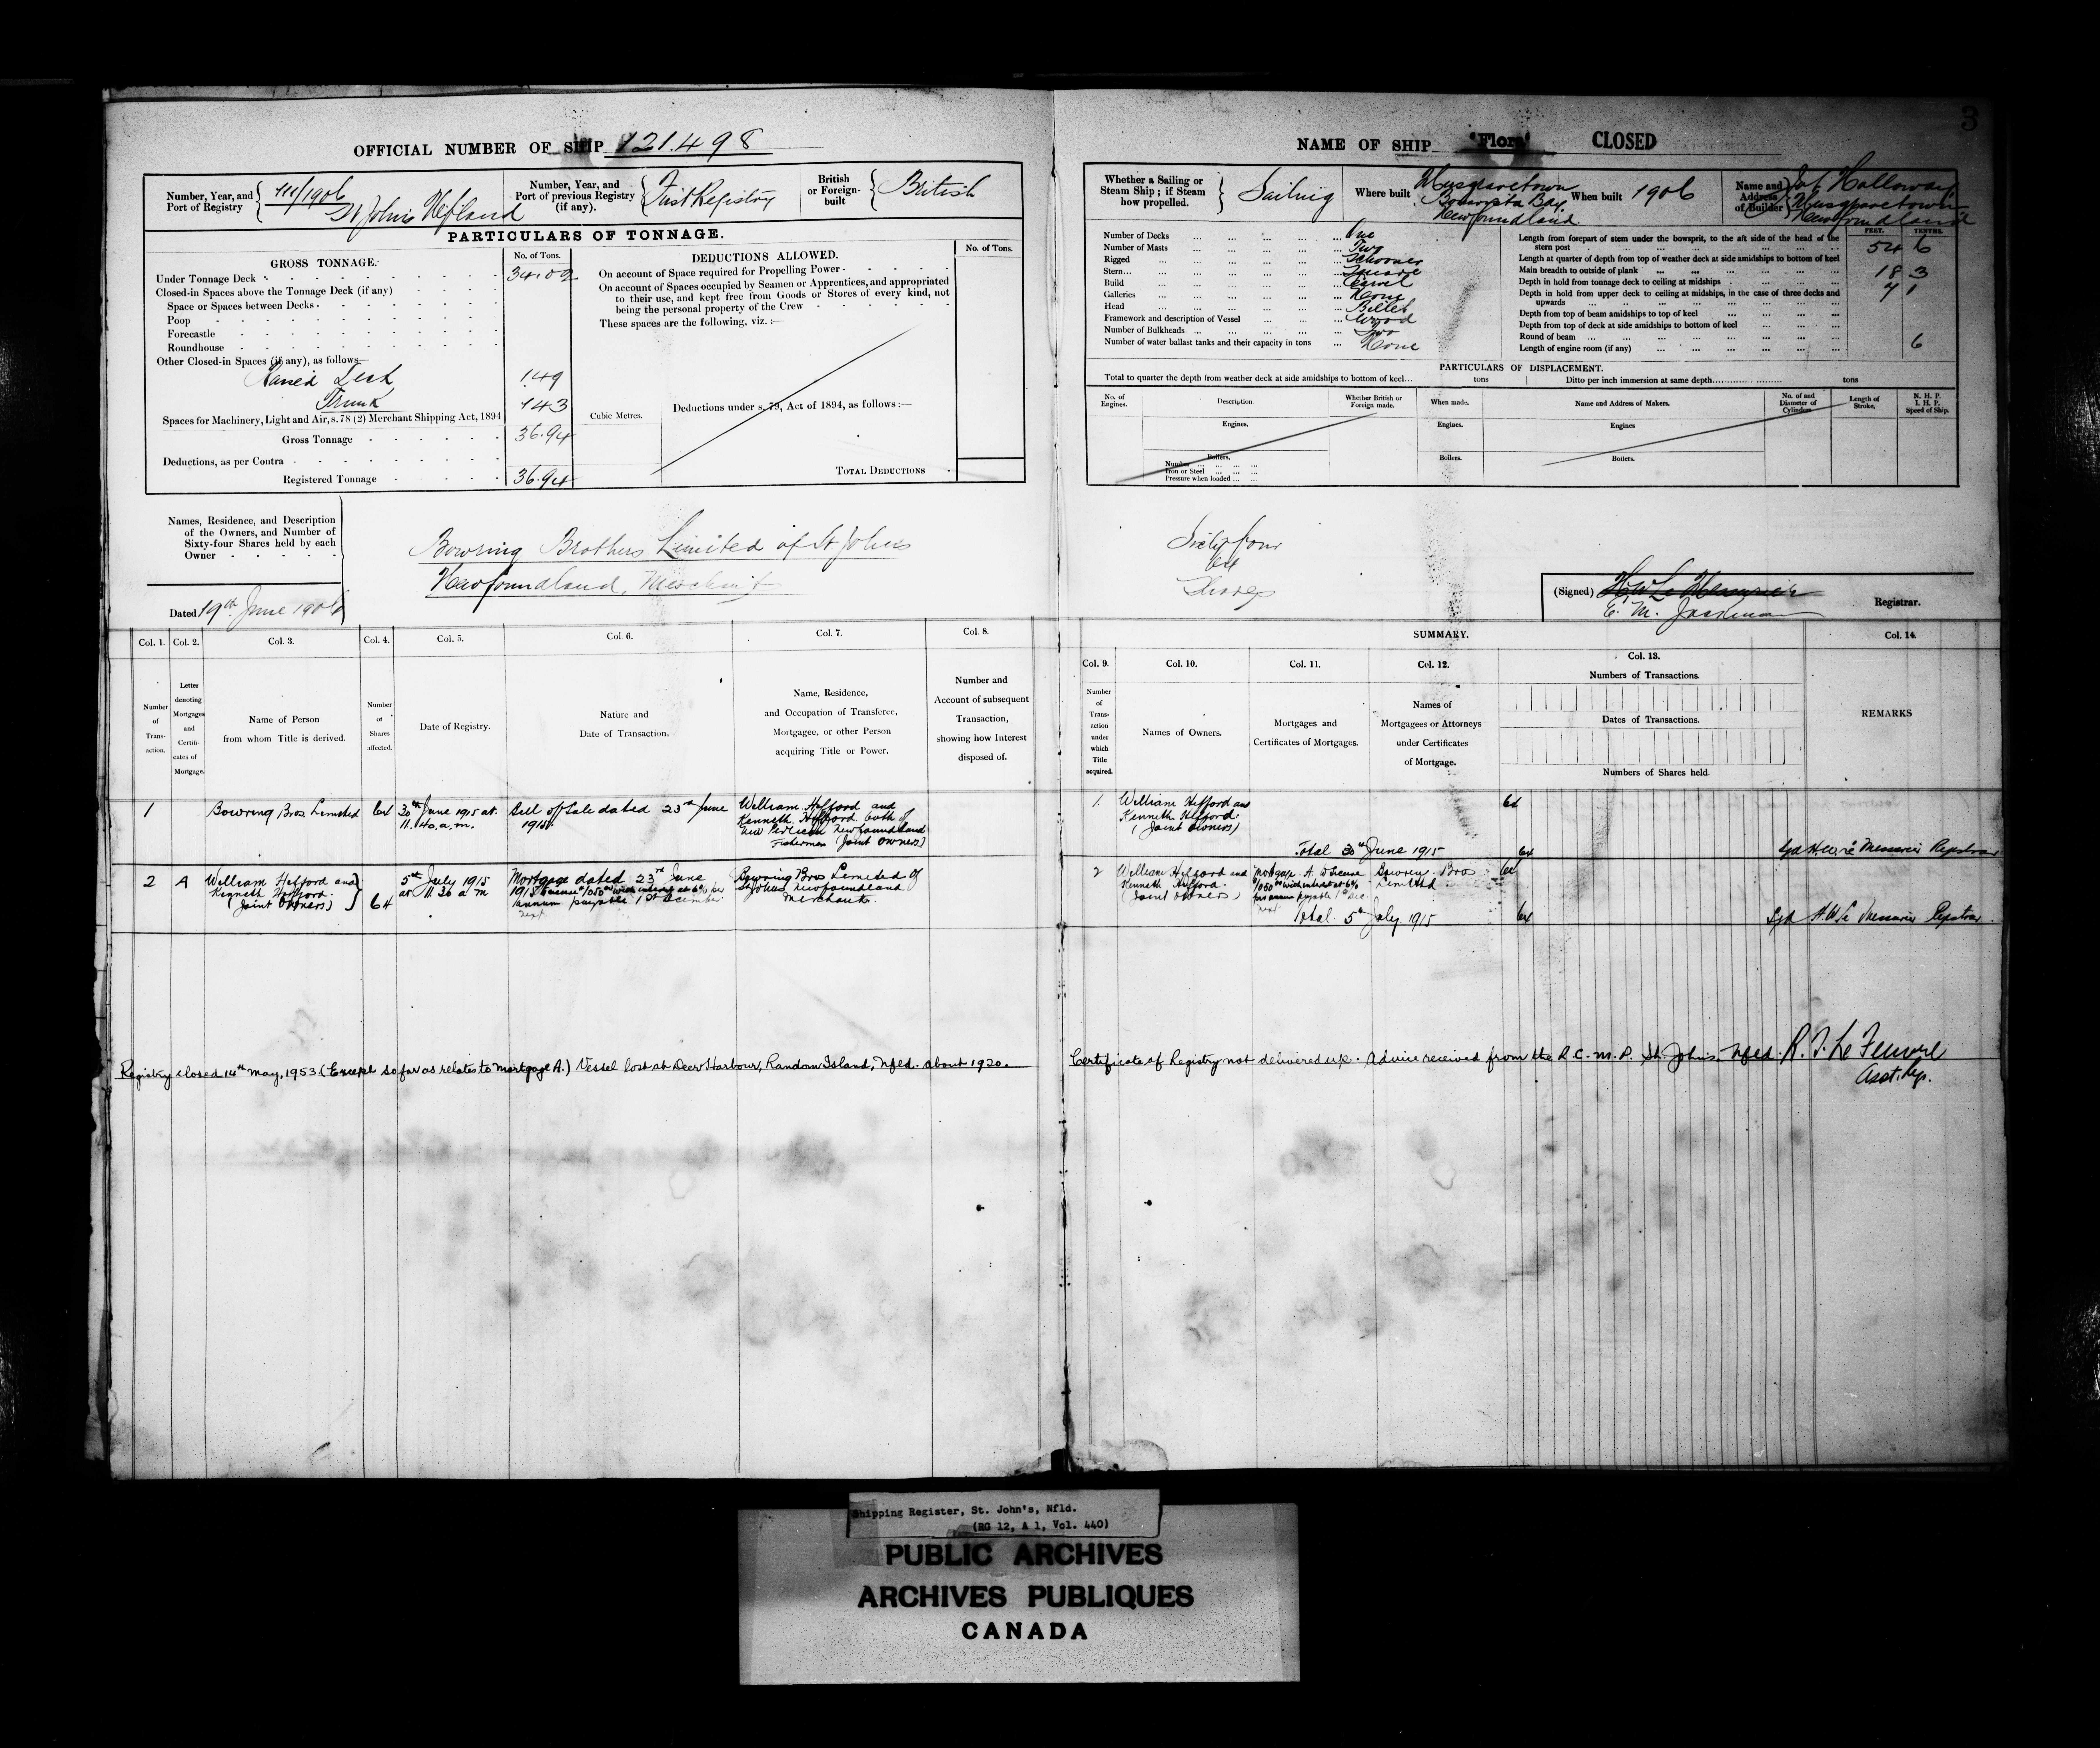 3
OFFICIAL NUMBER OF SHIP 121.498
Number, Year, and Port of Registry 111/1906 St John's Nfland
Number, Year, and Port of previous Registry (if any). First Registry
British or Foreign-built British
PARTICULARS OF TONNAGE.
GROSS TONNAGE. No. of Tons.
Under Tonnage Deck 34.02
Closed-in Spaces above the Tonnage Deck (if any)
Space or Spaces between Decks
Poop
Forecastle
Roundhouse
Other Closed-in Spaces (if any), as follows—
Raised Deck 1.49
Trunk 1.43
Spaces for Machinery, Light and Air, s. 78 (2) Merchant Shipping Act, 1894
Gross Tonnage 36.94
Deductions, as per Contra
Registered Tonnage 36.94
DEDUCTIONS ALLOWED. No. of Tons.
On account of Space required for Propelling Power
On account of Spaces occupied by Seamen or Apprentices, and appropriated
to their use, and kept free from Goods or Stores of every kind, not
being the personal property of the Crew
These spaces are the following, viz. :—
Cubic Metres.
Deductions under s. 79, Act of 1894, as follows :—
TOTAL DEDUCTIONS
Names, Residence, and Description
of the Owners, and Number of
Sixty-four Shares held by each
Owner
Bowring Brothers Limited of St Johns
Newfoundland, Merchant
Dated 19th June 1906
NAME OF SHIP "Flora" CLOSED
Whether a Sailing or Steam Ship ; if Steam how propelled. Sailing
Where built Musgravetown Bonavista Bay Newfoundland
When built 1906
Name and Address of Builder Holloway Musgravetown Newfoundland
Number of Decks One
Number of Masts Two
Rigged Schooner
Stern Square
Build Carvel
Galleries None
Head Billet
Framework and description of Vessel Wood
Number of Bulkheads Two
Number of water ballast tanks and their capacity in tons None
FEET. TENTHS.
Length from forepart of stem under the bowsprit, to the aft side of the head of the
stern post 54 6
Length at quarter of depth from top of weather deck at side amidships to bottom of keel
Main breadth to outside of plank 18 3
Depth in hold from tonnage deck to ceiling at midships 7 1
Depth in hold from upper deck to ceiling at midships, in the case of three decks and
upwards
Depth from top of beam amidships to top of keel
Depth from top of deck at side amidships to bottom of keel
Round of beam 6
Length of engine room (if any)
PARTICULARS OF DISPLACEMENT.
Total to quarter the depth from weather deck at side amidships to bottom of keel... tons
Ditto per inch immersion at same depth tons
No. of Engines.
Description
Whether British or Foreign made.
When made.
Name and Address of Makers.
No. of and Diameter of Cylinders
Length of Stroke.
N. H. P. I. H. P. Speed of Ship.
Engines. Engines. Engines
Boilers. Boilers. Boilers.
Number
Iron or Steel
Pressure when loaded
Sixty four
64
Shares
(Signed) E. M. Jackman Registrar.
Col. 1. Col. 2. Col. 3. Col. 4. Col. 5. Col. 6. Col. 7. Col. 8.
Number of Transaction.
Letter denoting Mortgages and Certificates of Mortgage.
Name of Person from whom Title is derived.
Number of Shares affected.
Date of Registry.
Nature and Date of Transaction.
Name, Residence, and Occupation of Transferee, Mortgagee, or other Person acquiring Title or Power.
Number and Account of subsequent Transaction, showing how Interest disposed of.
SUMMARY.
Col. 9. Col. 10. Col. 11. Col. 12. Col. 13. Col. 14.
Number of Transaction under which Title acquired.
Names of Owners.
Mortgages and Certificates of Mortgages.
Names of Mortgagees or Attorneys under Certificates of Mortgage.
Numbers of Transactions.
Dates of Transactions.
Numbers of Shares held.
REMARKS
1 Bowring Bros. Limited 64 30th June 1915 at 11.40 a.m. Bill of Sale dated 23rd June 1915. William Hefford and Kenneth Hefford both of New Perlican Newfoundland Fishermen (Joint Owners)
1. William Hefford and Kenneth Hefford (Joint Owners) 64
Total 30th June 1915 64 Sgd H.W. Le Messurier Registrar
2 A William Hefford and Kenneth Hefford (Joint Owners) 64 5th July 1915 at 11.30 a m Mortgage dated 23rd June 1915 to secure $1050.00 with interest at 6% per annum payable 1st December next Bowring Bros Limited of St Johns Newfoundland Merchants
2 William Hefford and Kenneth Hefford (Joint Owners) Mortgage A to secure $1050.00 with interest at 6% per annum payable 1st Dec next Bowring Bros Limited 64
Total 5th July 1915 64 Sgd H.W. Le Messurier Registrar.
Registry closed 14th May, 1953 (Except so far as relates to mortgage A.) Vessel lost at Deer Harbour, Random Island, Nfld. about 1920.
Certificate of Registry not delivered up. Advice received from the R.C.M.P. St. John's, Nfld. R. J. Le Feuvre
Asst. Reg.
Shipping Register, St. John's, Nfld.
(RG 12, A 1, Vol. 440)
PUBLIC ARCHIVES
ARCHIVES PUBLIQUES
CANADA